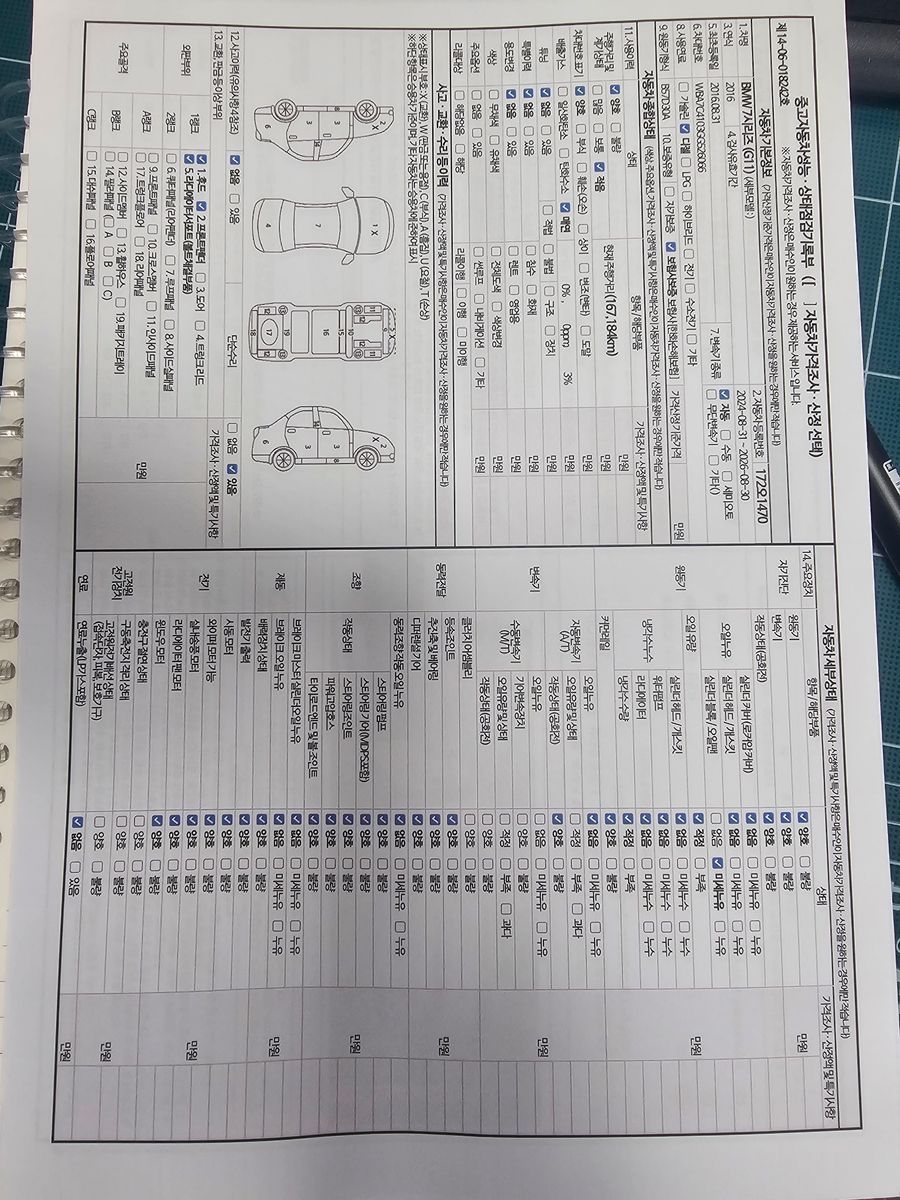 중고자동차성능·상태점검기록부 ([ ]자동차가격조사·산정 선택)
※ 자동차가격조사·산정은 매수인이 원하는 경우 제공하는 서비스 입니다.
제 14-06-018242호
자동차기본정보 (가격산정 기준가격은 매수인이 자동차가격조사·산정을 원하는 경우에만 적습니다)
1. 차명 BMW7시리즈 (G11) (세부모델: ) 2. 자동차등록번호 172오1470
3. 연식 2016 4. 검사유효기간 2024-08-31 ~ 2026-08-30
5. 최초등록일 2016.08.31 7. 변속기종류 ☑ 자동 ☐ 수동 ☐ 세미오토
6. 차대번호 ☐ 무단변속기 ☐ 기타 ( )
8. 사용연료 ☐ 가솔린 ☑ 디젤 ☐ LPG ☐ 하이브리드 ☐ 전기 ☐ 수소전기 ☐ 기타
9. 원동기형식 B57D30A 10. 보증유형 ☐ 자가보증 ☑ 보험사보증 가격산정 기준가격 만원
자동차 종합상태 (색상, 주요옵션, 가격조사·산정액 및 특기사항은 매수인이 자동차가격조사·산정을 원하는 경우에만 적습니다)
11. 사용이력 상태 항목 / 해당부품 가격조사·산정액 및 특기사항
주행거리 및 계기상태 ☑ 양호 ☐ 불량 만원
☐ 많음 ☐ 보통 ☑ 적음 현재 주행거리 (167,184km) 만원
차대번호 표기 ☑ 양호 ☐ 부식 ☐ 훼손(오손) ☐ 상이 ☐ 변조(변타) ☐ 도말 만원
배출가스 ☐ 일산화탄소 ☐ 탄화수소 ☑ 매연 0%, 0ppm, 3% 만원
튜닝 ☑ 없음 ☐ 있음 ☐ 적법 ☐ 불법 ☐ 구조 ☐ 장치 만원
특별이력 ☑ 없음 ☐ 있음 ☐ 침수 ☐ 화재 만원
용도변경 ☑ 없음 ☐ 있음 ☐ 렌트 ☐ 영업용 만원
색상 ☐ 무채색 ☐ 유채색 ☐ 전체도색 ☐ 색상변경 만원
주요옵션 ☐ 없음 ☐ 있음 ☐ 썬루프 ☐ 내비게이션 ☐ 기타 만원
리콜대상 ☐ 해당없음 ☐ 해당 리콜이행 ☐ 이행 ☐ 미이행
사고·교환·수리 등 이력 (가격조사·산정액 및 특기사항은 매수인이 자동차가격조사·산정을 원하는 경우에만 적습니다)
※ 상태표시 부호 : X (교환), W (판금 또는 용접), C (부식), A (흠집), U (요철), T (손상)
※ 하단 항목은 승용차 기준이며, 기타 자동차는 승용차에 준하여 표시
12. 사고이력 (유의사항4 참조) ☑ 없음 ☐ 있음 단순수리 ☐ 없음 ☑ 있음
13. 교환, 판금 등 이상 부위 가격조사·산정액 및 특기사항
외판부위 1랭크 ☑ 1.후드 ☑ 2.프론트펜더 ☐ 3.도어 ☐ 4.트렁크 리드
☑ 5.라디에이터서포트(볼트체결부품)
2랭크 ☐ 6.쿼터패널(리어펜더) ☐ 7.루프패널 ☐ 8.사이드실패널
주요골격 A랭크 ☐ 9.프론트패널 ☐ 10.크로스멤버 ☐ 11.인사이드패널
☐ 17.트렁크플로어 ☐ 18.리어패널
B랭크 ☐ 12.사이드멤버 ☐ 13.휠하우스
☐ 14.필러패널 ( ☐ A ☐ B ☐ C ) ☐ 19.패키지트레이
C랭크 ☐ 15.대쉬패널 ☐ 16.플로어패널
만원
자동차 세부상태 (가격조사·산정액 및 특기사항은 매수인이 자동차가격조사·산정을 원하는 경우에만 적습니다)
14. 주요장치 항목 / 해당부품 상태 가격조사·산정액 및 특기사항
자기진단 원동기 ☑ 양호 ☐ 불량 만원
변속기 ☑ 양호 ☐ 불량
원동기 작동상태(공회전) ☑ 양호 ☐ 불량 만원
오일누유 실린더 커버(로커암 커버) ☑ 없음 ☐ 미세누유 ☐ 누유
실린더 헤드 / 개스킷 ☑ 없음 ☐ 미세누유 ☐ 누유
실린더 블록 / 오일팬 ☐ 없음 ☑ 미세누유 ☐ 누유
오일 유량 ☑ 적정 ☐ 부족
냉각수누수 실린더 헤드 / 개스킷 ☑ 없음 ☐ 미세누수 ☐ 누수
워터펌프 ☑ 없음 ☐ 미세누수 ☐ 누수
라디에이터 ☑ 없음 ☐ 미세누수 ☐ 누수
냉각수 수량 ☑ 적정 ☐ 부족
커먼레일 ☑ 양호 ☐ 불량
변속기 자동변속기 (A/T) 오일누유 ☑ 없음 ☐ 미세누유 ☐ 누유 만원
오일유량 및 상태 ☐ 적정 ☐ 부족 ☐ 과다
작동상태(공회전) ☑ 양호 ☐ 불량
수동변속기 (M/T) 오일누유 ☐ 없음 ☐ 미세누유 ☐ 누유
기어변속장치 ☐ 양호 ☐ 불량
오일유량 및 상태 ☐ 적정 ☐ 부족 ☐ 과다
작동상태(공회전) ☐ 양호 ☐ 불량
동력전달 클러치 어셈블리 ☐ 양호 ☐ 불량 만원
등속조인트 ☑ 양호 ☐ 불량
추진축 및 베어링 ☑ 양호 ☐ 불량
디퍼렌셜 기어 ☑ 양호 ☐ 불량
조향 동력조향 작동 오일 누유 ☑ 없음 ☐ 미세누유 ☐ 누유 만원
작동상태 스티어링 펌프 ☑ 양호 ☐ 불량
스티어링 기어(MDPS포함) ☑ 양호 ☐ 불량
스티어링조인트 ☑ 양호 ☐ 불량
파워고압호스 ☑ 양호 ☐ 불량
타이로드엔드 및 볼 조인트 ☑ 양호 ☐ 불량
제동 브레이크 마스터 실린더오일 누유 ☑ 없음 ☐ 미세누유 ☐ 누유 만원
브레이크 오일 누유 ☑ 없음 ☐ 미세누유 ☐ 누유
배력장치 상태 ☑ 양호 ☐ 불량
전기 발전기 출력 ☑ 양호 ☐ 불량 만원
시동 모터 ☑ 양호 ☐ 불량
와이퍼 모터 기능 ☑ 양호 ☐ 불량
실내송풍 모터 ☑ 양호 ☐ 불량
라디에이터 팬 모터 ☑ 양호 ☐ 불량
윈도우 모터 ☑ 양호 ☐ 불량
고전원 전기장치 충전구 절연 상태 ☐ 양호 ☐ 불량 만원
구동축전지 격리 상태 ☐ 양호 ☐ 불량
고전원전기배선 상태 (접속단자, 피복, 보호기구) ☐ 양호 ☐ 불량
연료 연료누출(LP가스포함) ☑ 없음 ☐ 있음 만원